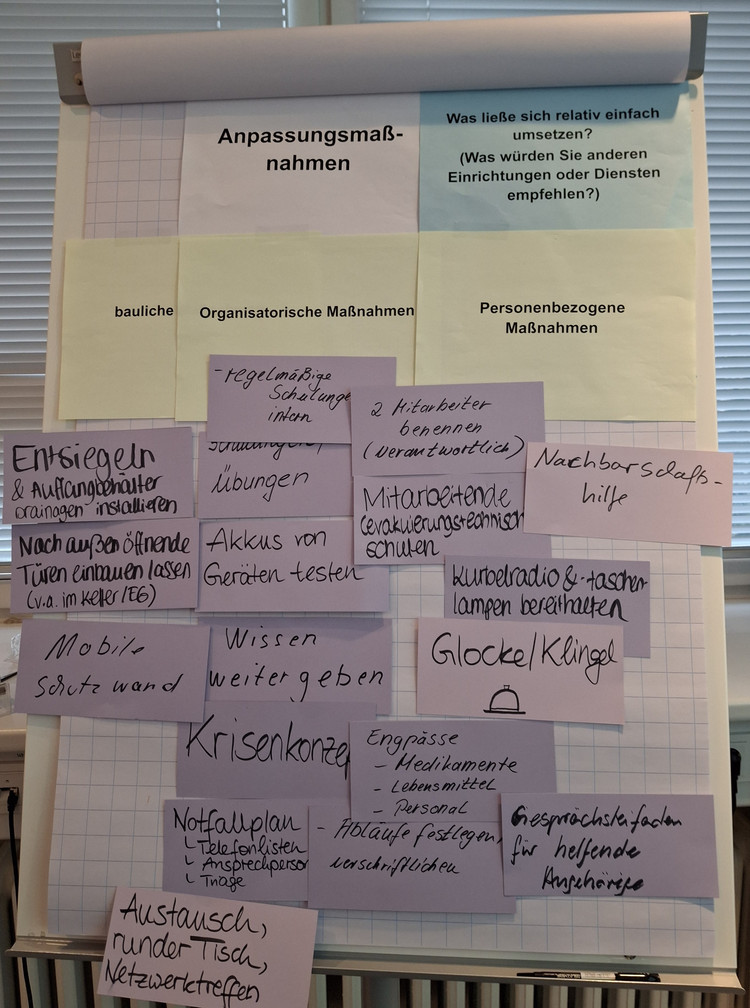 Anpassungsmaß-
nahmen
Was ließe sich relativ einfach
umsetzen?
(Was würden Sie anderen
Einrichtungen oder Diensten
empfehlen?)
bauliche
Organisatorische Maßnahmen
Personenbezogene
Maßnahmen
- regelmäßige
Schulunge
intern
2 Mitarbeiter
benennen
(verantwortlich)
Entsiegeln
& Auffangbehälter
Drainagen installieren
Übungen
Nachbarschafts-
hilfe
Mitarbeitende
(evakuierungstechnisch
schulen
Nach außen öffnende
Türen einbauen lassen
(v.a. im Keller/EG)
Akkus von
Geräten testen
Kurbelradio & -taschen-
lampen bereithalten
Mobile
Schutzwand
Wissen
weitergeben
Glocke/Klingel
Krisenkonze
Engpässe
- Medikamente
- Lebensmittel
- Personal
Notfallplan
Telefonlisten
Ansprechperson
Triage
- Abläufe festlegen,
verschriftlichen
Gesprächsleitfaden
für helfende
Angehörige
Austausch,
runder Tisch,
Netzwerktreffen